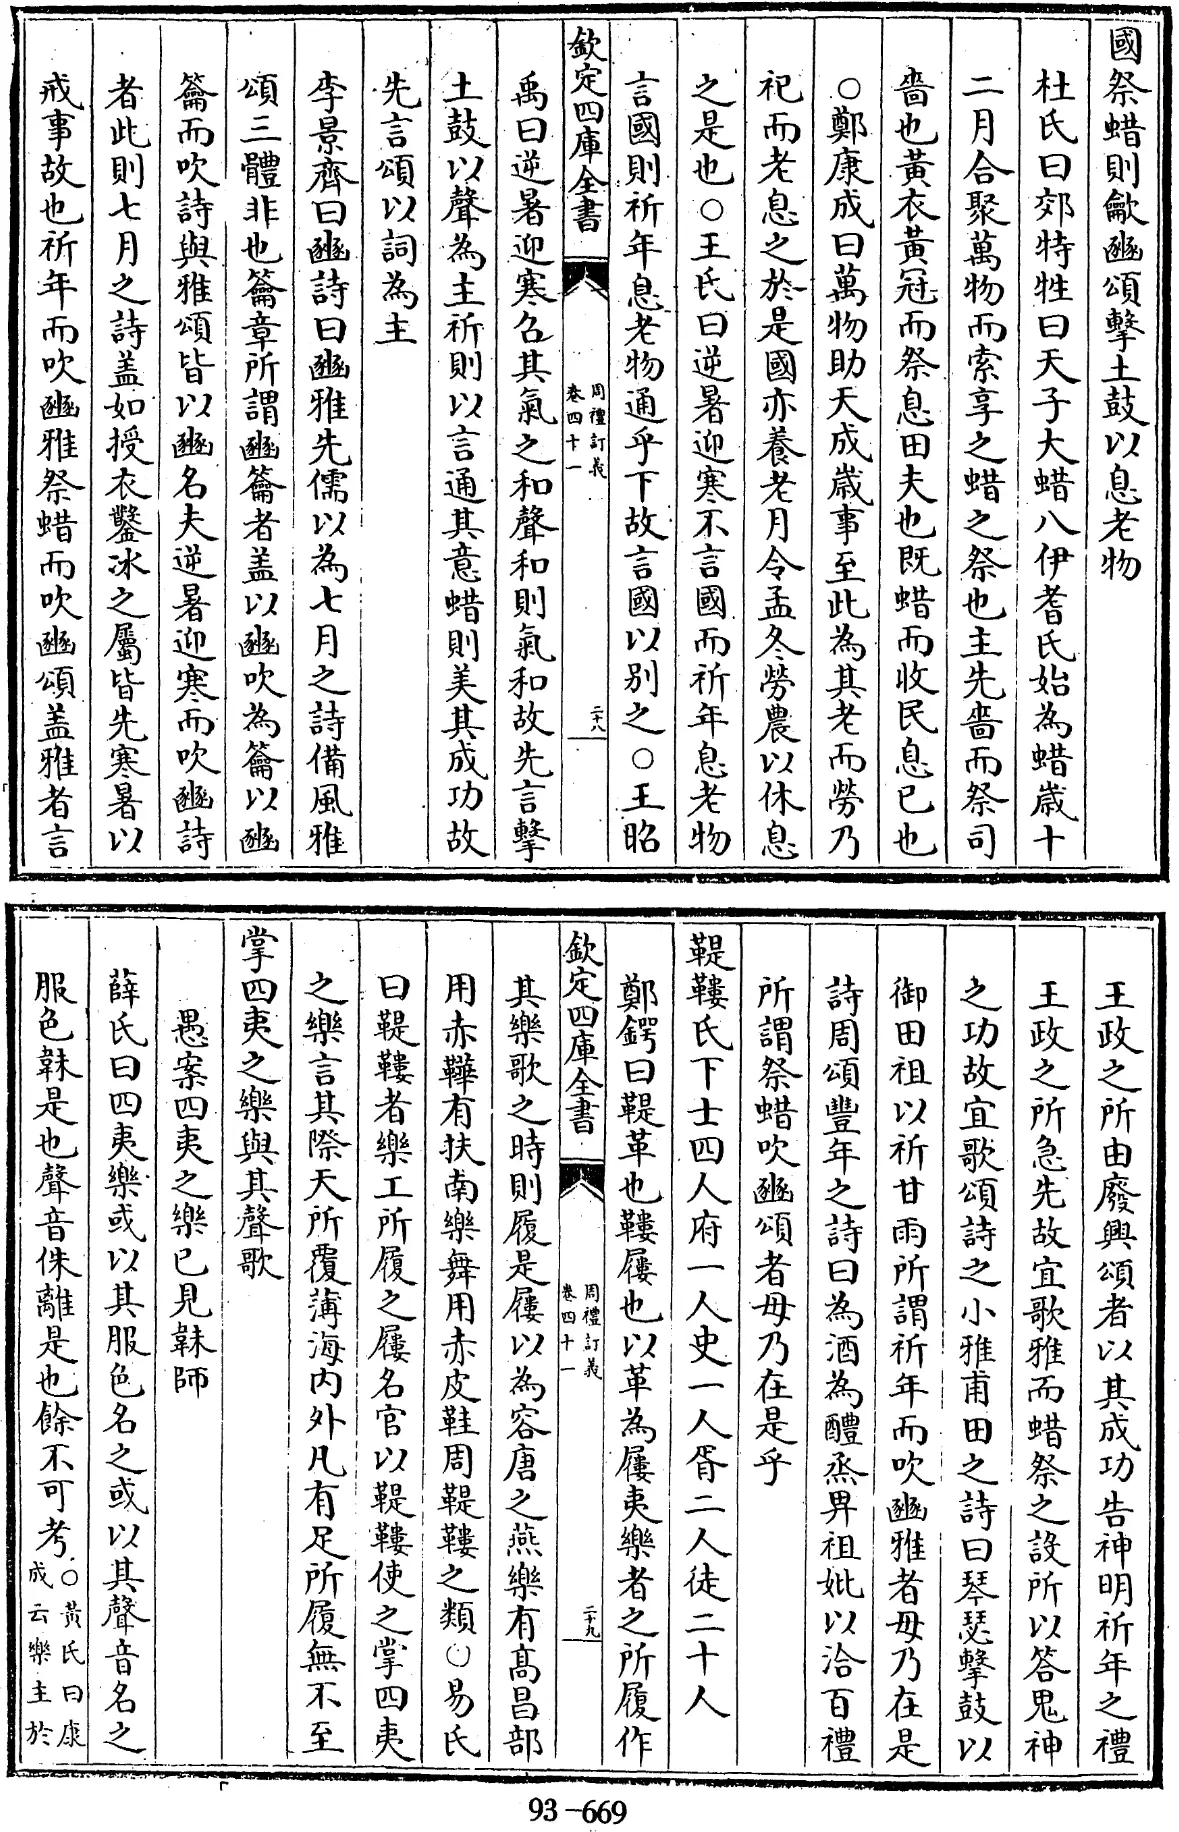 國祭蜡則龡豳頌擊土鼓以息老物
杜氏曰郊特牲曰天子大蜡八伊耆氏始為蜡歲十
二月合聚萬物而索享之蜡之祭也主先嗇而祭司
嗇也黃衣黃冠而祭息田夫也既蜡而收民息已也
○鄭康成曰萬物助天成歲事至此為其老而勞乃
祀而老息之於是國亦養老月令孟冬勞農以休息
之是也○王氏曰逆暑迎寒不言國而祈年息老物
言國則祈年息老物通乎下故言國以別之○王昭
欽定四庫全書
周禮訂義
卷四十一
二十八
禹曰逆暑迎寒名其氣之和聲和則氣和故先言擊
土鼓以聲為主祈則以言通其意蜡則美其成功故
先言頌以詞為主
李景齊曰豳詩曰豳雅先儒以為七月之詩備風雅
頌三體非也籥章所謂豳籥者盖以豳吹為籥以豳
籥而吹詩與雅頌皆以豳名夫逆暑迎寒而吹豳詩
者此則七月之詩盖如授衣鑿冰之屬皆先寒暑以
戒事故也祈年而吹豳雅祭蜡而吹豳頌盖雅者言
王政之所由廢興頌者以其成功告神明祈年之禮
王政之所急先故宜歌雅而蜡祭之設所以答鬼神
之功故宜歌頌詩之小雅甫田之詩曰琴瑟擊鼓以
御田祖以祈甘雨所謂祈年而吹豳雅者毋乃在是
詩周頌豐年之詩曰為酒為醴烝畀祖妣以洽百禮
所謂祭蜡吹豳頌者毋乃在是乎
鞮鞻氏下士四人府一人史一人胥二人徒二十人
鄭鍔曰鞮革也鞻屨也以革為屨夷樂者之所履作
欽定四庫全書
周禮訂義
卷四十一
二十九
其樂歌之時則履是屨以為容唐之燕樂有髙昌部
用赤鞾有扶南樂舞用赤皮鞋周鞮鞻之類○易氏
曰鞮鞻者樂工所履之屨名官以鞮鞻使之掌四夷
之樂言其際天所覆薄海内外凡有足所履無不至
掌四夷之樂與其聲歌
愚案四夷之樂已見韎師
薛氏曰四夷樂或以其服色名之或以其聲音名之
服色韎是也聲音侏離是也餘不可考○黃氏曰康
成云樂主於
93-669